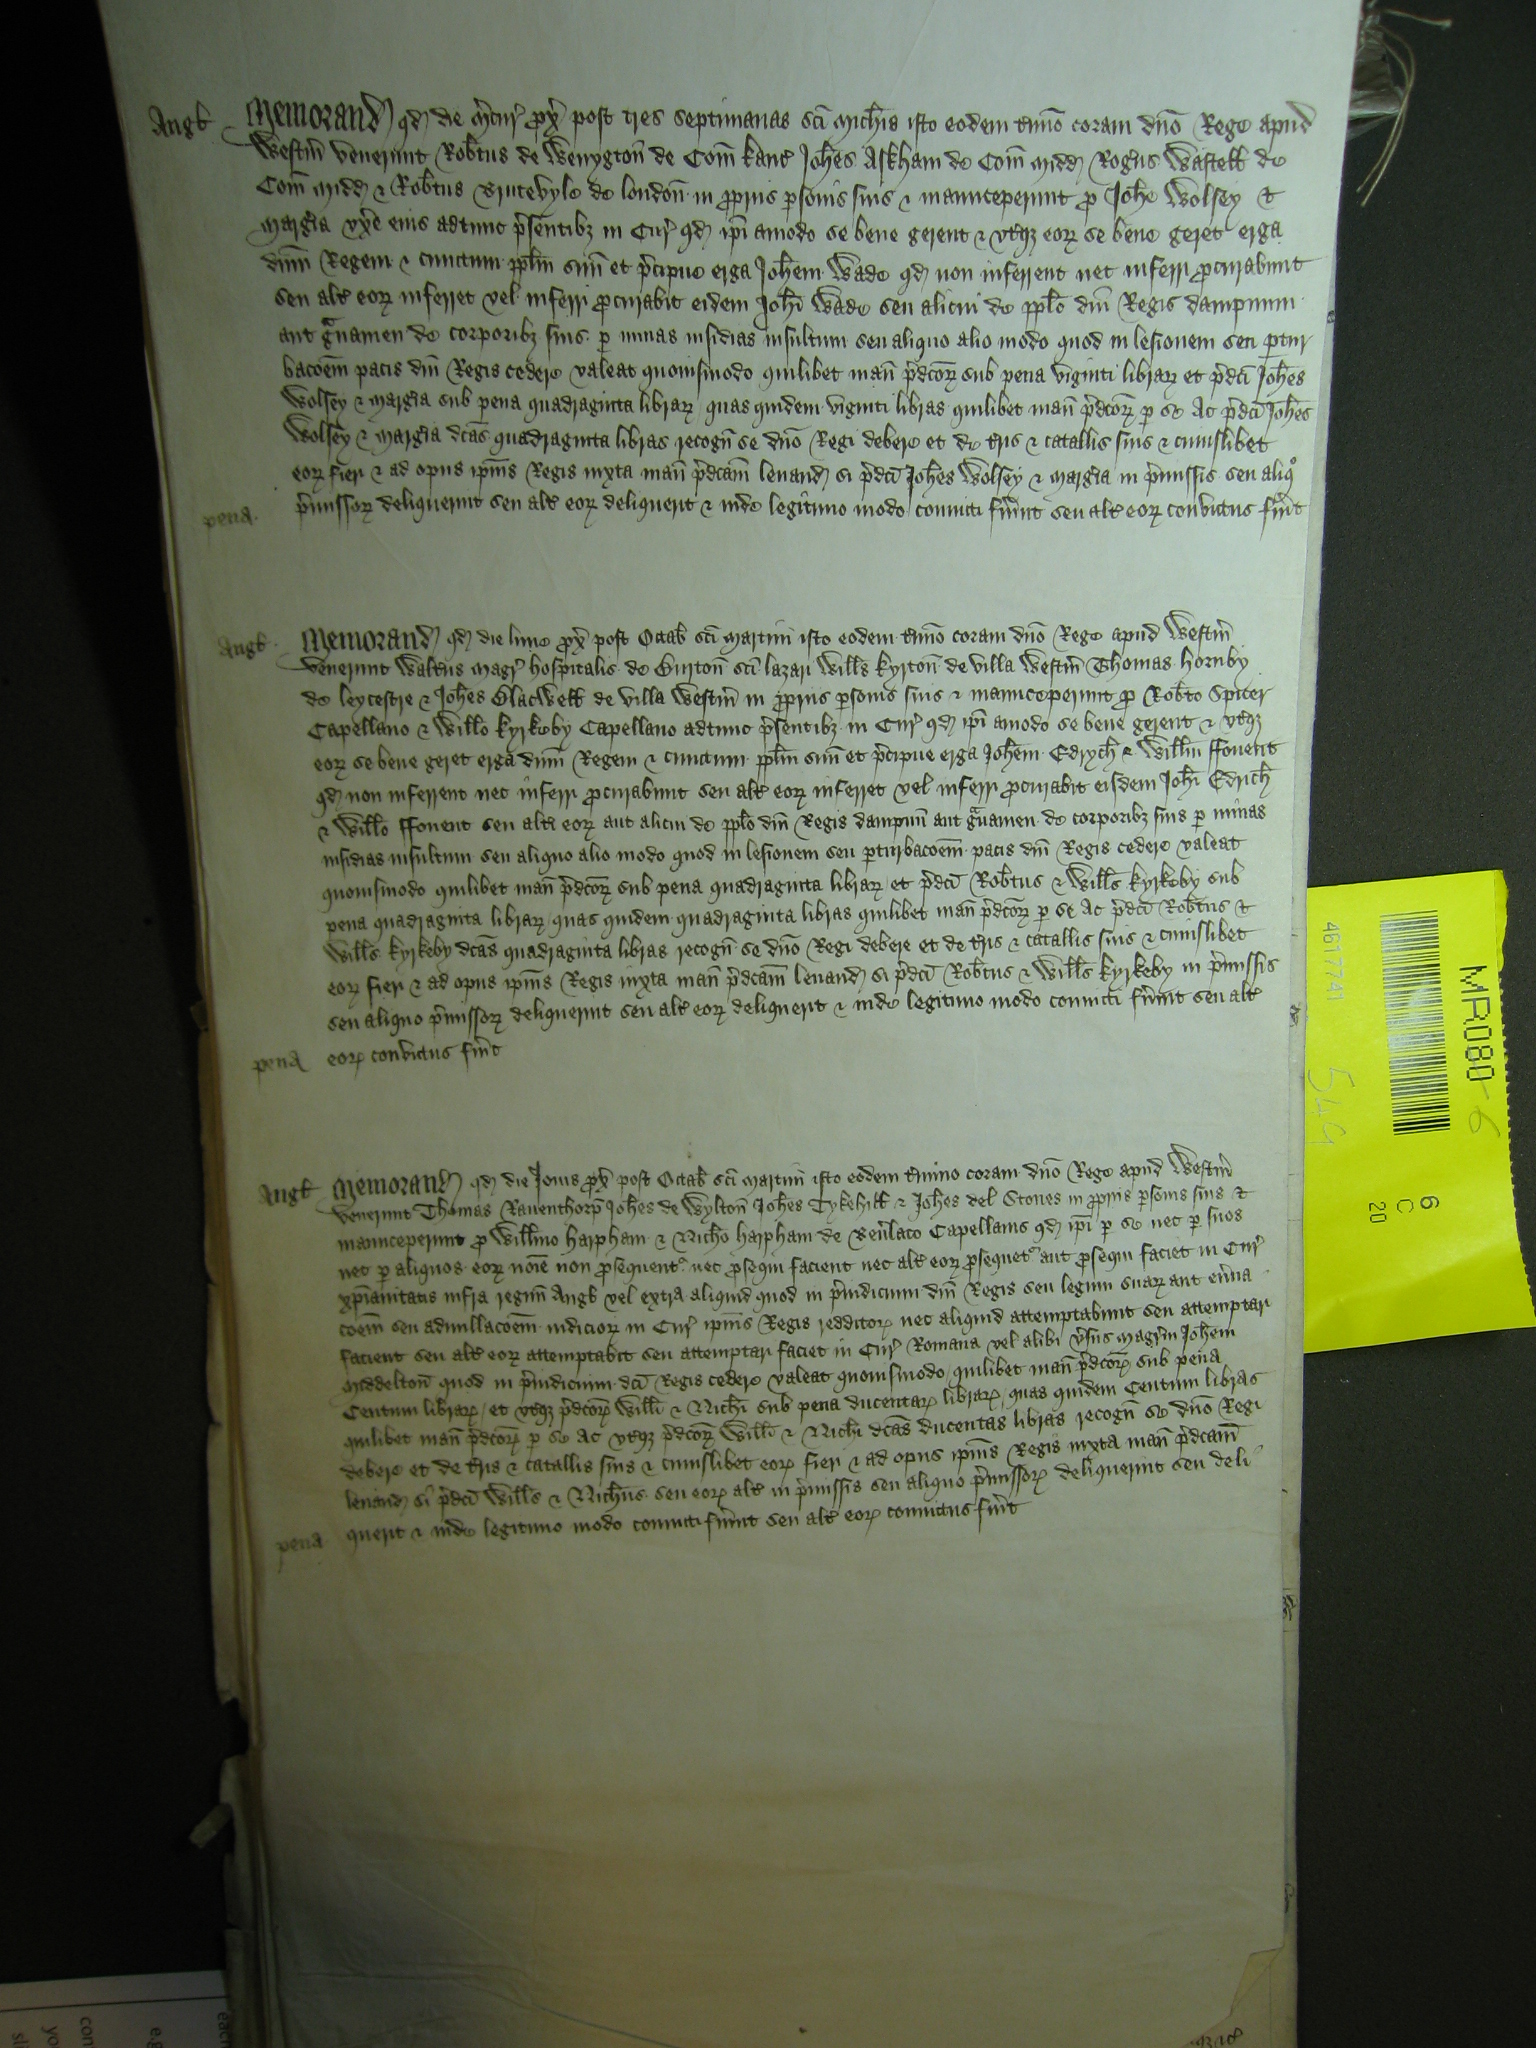 Angl̄ Memorand qd die m̄cur̄ px̄ post tres septimanas sc̄i Mich̄is isto eodem t̄mīo coram dn̄o Rege apud
Westm̄ venerunt Rob̄tus de Wenyngton̄ de Com̄ Kanc̄ Joh̄es Askham de Com̄ Midd Rog̃us Wastell de
Com̄ Midd & Rob̄tus de london̄ in p̱priis p̱sonis suis & manuceperunt p̱ Joh̄e Wolsey &
Marg̃ia vx̄e eius adtunc p̄sentibȝ in Cur̄ qd ip̄i amodo se bene gerent & vt̄qȝ eoꝝ se bene geret erga
dn̄m Regem & cunctum pp̄lm̄ suū et p̄cipue erga Joh̄em Wade qd non inferrent nec inferri p̱curabunt
seu alt̄ eoꝝ inferret vel inferri p̱curabit eidem Joh̄i Wade seu alicui de pp̄lo dn̄i Regis dampnum
aut g̃uamen de corporibȝ suis p̱ minas insidias insultum seu aliquo alio modo quod in lesionem seu p̱tur
bac̄oem pacis dn̄i Regis cedere valeat quouismodo quilibet man̄ p̄dc̄oꝝ sub pena viginti libraꝝ et p̄dc̄i Joh̄es
Wolsey & Marg̃ia sub pena quadraginta libraꝝ quas quidem viginti libras quilibet man̄ p̄dc̄oꝝ p̱ se Ac p̄dc̄i Joh̄es
Wolsey & Marg̃ia dc̄as quadraginta libras recogn̄ se dn̄o Regi debere et de t̄ris & catallis suis & cuiuslibet
eoꝝ fieri & ad opus ip̄ius Regis iuxta man̄ p̄dc̄am leuand si p̄dc̄i Joh̄es Wolsey & Marg̃ia in p̄missis seu aliqo
pena p̄missoꝝ deliquerint seu alt̄ eoꝝ deliquerit & inde legitimo modo conuicti fūint seu alt̄ eoꝝ convictus fūit
Angl̄ Memorand qd die lune px̄ post Octab̄ sc̄i Martini isto eodem t̄mīo coram dn̄o Rege apud Westm̄
venerunt Walt̄us Magr̄ hospitalis de Burton̄ sc̄i lazari Will̄s Kyrton̄ de villa Westm̄ Thomas Hornby
de leycestre & Joh̄es Blacwell de villa Westm̄ in p̱priis p̱sonis suis & manuceperunt p̱ Rob̄to Spicer
Capellano & Will̄o Kyrkeby Capellano adtunc p̄sentibȝ in Cur̄ qd ip̄i amodo se bene gerent & vt̄qȝ
eoꝝ se bene geret erga dn̄m Regem & cunctum pp̄lm̄ suū et p̄cipue erga Joh̄em Edrych & Will̄m ffouent
qd non inferrent nec inferri p̱curabunt seu alt̄ eoꝝ inferret vel inferri p̱curabit eisdem Joh̄i Edrich
& Will̄o ffouent seu alt̄i eoꝝ aut alicui de pp̄lo dn̄i Regis dampnū aut g̃uamen de corporibȝ suis p̱ minas
insidias insultum seu aliquo alio modo quod in lesionem seu p̱turbac̄oem pacis dn̄i Regis cedere valeat
quouismodo quilibet man̄ p̄dc̄oꝝ sub pena quadraginta libraꝝ et p̄dc̄i Rob̄tus & Will̄s Kyrkeby sub
pena quadraginta libraꝝ quas quidem quadraginta libras quilibet man̄ p̄dc̄oꝝ p̱ se Ac p̄dc̄i Rob̄tus &
Will̄s Kyrkeby dc̄as quadraginta libras recogn̄ se dn̄o Regi debere et de t̄ris & catallis suis & cuiuslibet
eoꝝ fieri & ad opus ip̄ius Regis iuxta man̄ p̄dc̄am leuand si p̄dc̄i Rob̄tus & Will̄s Kyrkeby in p̄missis
seu aliquo p̄missoꝝ deliquerint seu alt̄ eoꝝ deliquerit & inde legitimo modo conuicti fūint seu alt̄
pena eoꝝ convictus fūit
Angl̄ Memorand qd die Jouis px̄ post Octab̄ sc̄i Martini isto eodem t̄mino coram dn̄o Rege apud Westm̄
venerunt Thomas Rauenthorp̄ Joh̄es de Wylton̄ Joh̄es Tykehill & Joh̄es del Stones in p̱priis p̱sonis suis &
manuceperunt p̱ Will̄mo Harpham & Nich̄o Harpham de Beūlaco Capellanis qd ip̄i p̱ se nec p̱ suos
nec p̱ aliquos eoꝝ noīe non p̱sequent̄ nec p̱sequi facient nec alt̄ eoꝝ p̱sequet̄ aut p̱sequi faciet in Cur̄
xp̄ianitatis infra regnū Angl̄ vel extra aliquid quod in p̄iudicium dn̄i Regis seu legum suaꝝ aut en̄ua
c̄oem seu adnullac̄oem iudicioꝝ in Cur̄ ip̄ius Regis redditoꝝ nec aliquid attemptabunt seu attemptari
facient seu alt̄ eoꝝ attemptabit seu attemptari faciet in Cur̄ Romana vel alibi v̄sus Magr̄m Joh̄em
Middelton̄ quod in p̄iudicium dc̄i Regis cedere valeat quouismodo quilibet man̄ p̄dc̄oꝝ sub pena
Centum libraꝝ et vt̄qȝ p̄dc̄oꝝ Will̄i & Nich̄i sub pena ducentaꝝ libraꝝ quas quidem Centum libras
quilibet man̄ p̄dc̄oꝝ p̱ se Ac vt̄qȝ p̄dc̄oꝝ Will̄i & Nich̄i dc̄as ducentas libras recogn̄ se dn̄o Regi
debere et de t̄ris & catallis suis & cuiuslibet eoꝝ fieri & ad opus ip̄ius Regis iuxta man̄ p̄dc̄am
leuand si p̄dc̄i Will̄s & Nich̄us seu eoꝝ alt̄ in p̄missis seu aliquo p̄missoꝝ deliquerint seu deli
pena querit & inde legitimo modo conuicti fūint seu alt̄ eoꝝ conuictus fūit
MR080-6
4617741
549
6
C
20
each
e.g
con
yo
sl